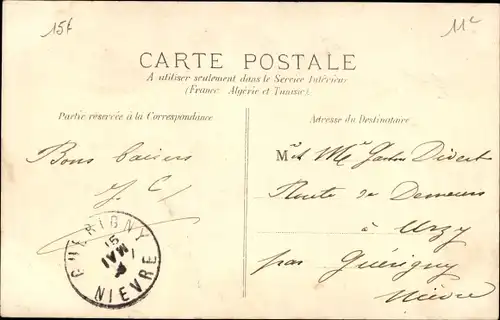 15f
11c
CARTE POSTALE
A utiliser seulement dans le Service Intérieur
(France, Algérie et Tunisie).
Partie réservée à la Correspondance
Adresse du Destinataire
Bons baisers
J C
M et Me Gaston
Route de
à Urzy
par Guérigny
Nièvre
GUÉRIGNY
15
MAI
NIEVRE